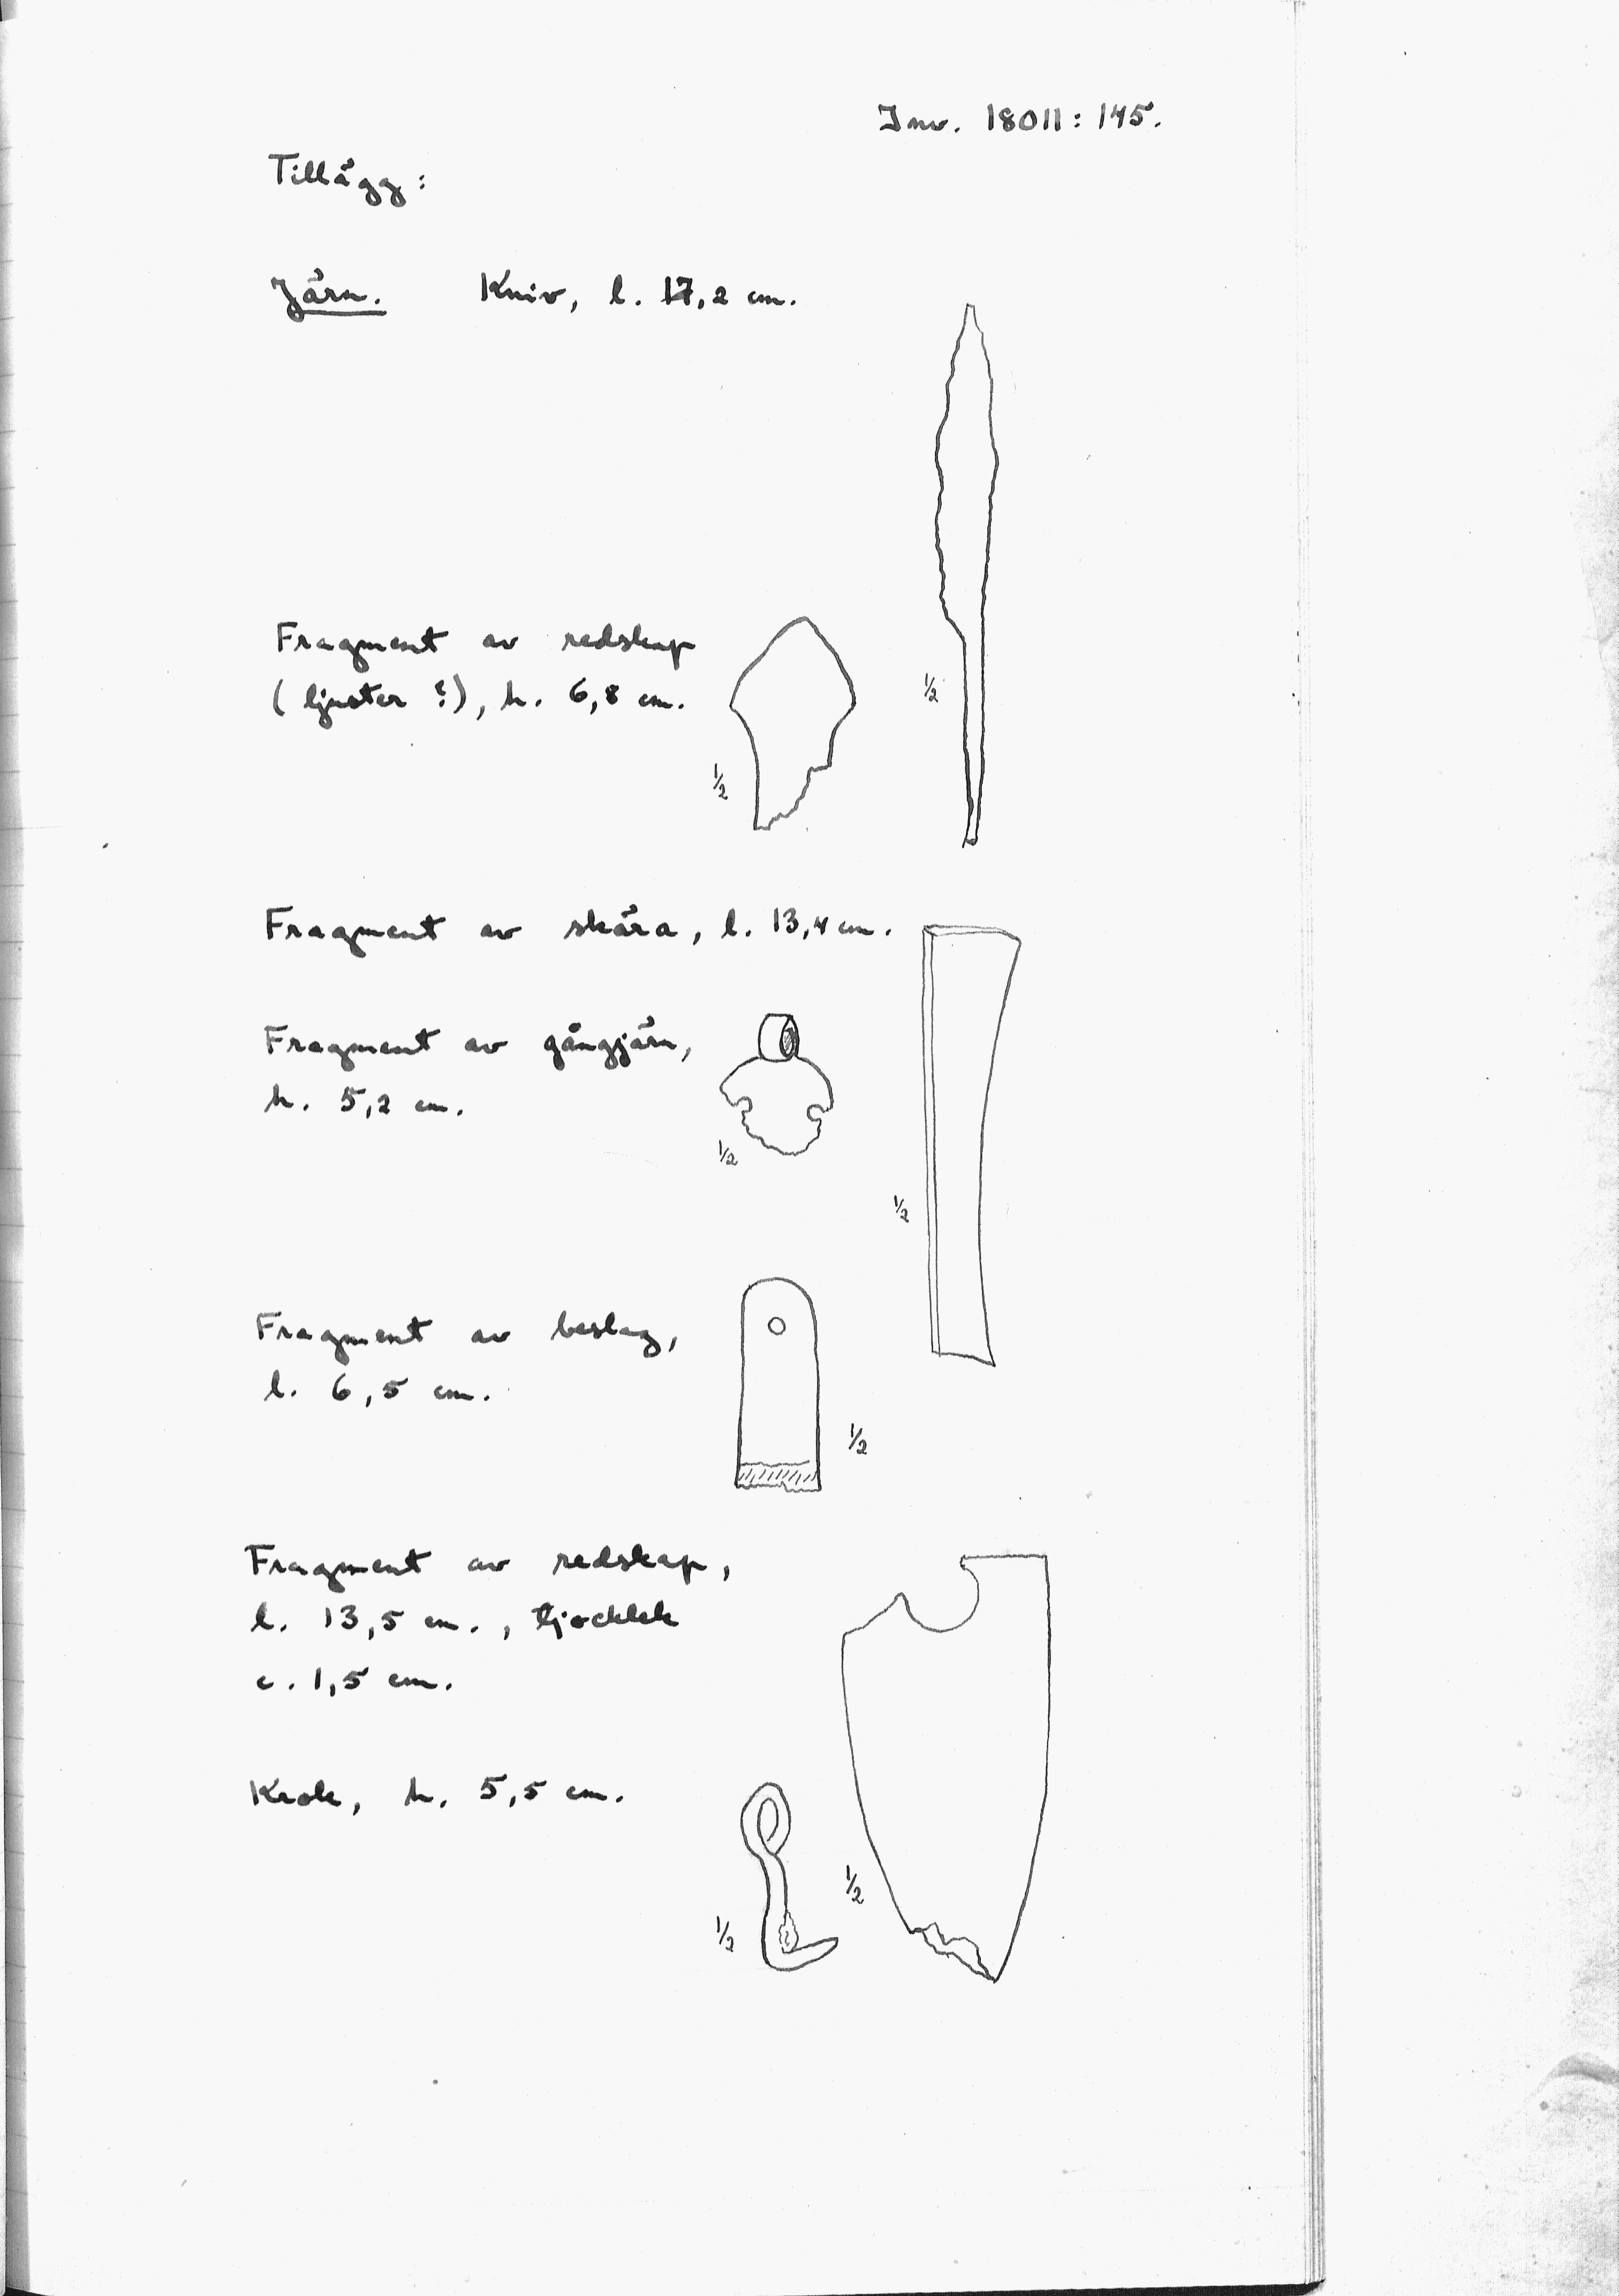 Inv. 18011: 145.
Tillägg:
Järn. Kniv, l. 17,2 cm.
Fragment av redskap
(ljuster ?), h. 6,8 cm.
1/2
1/2
Fragment av skära, l. 13,4 cm.
Fragment av gångjärn,
h. 5,2 cm.
1/2
1/2
Fragment av beslag,
l. 6,5 cm.
1/2
Fragment av redskap,
l. 13,5 cm., tjocklek
c. 1,5 cm.
Krok, h. 5,5 cm.
1/2
1/2